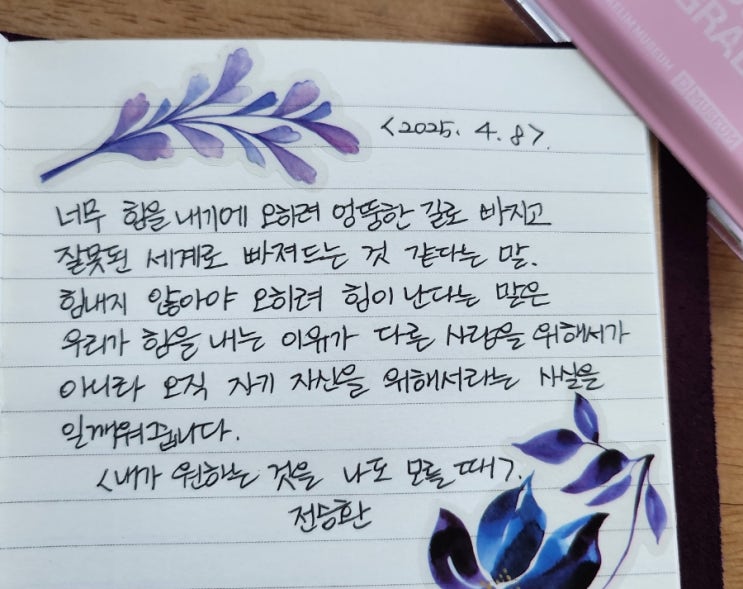 <2025. 4. 8>.
너무 힘을 내기에 오히려 엉뚱한 길로 빠지고
잘못된 세계로 빠져드는 것 같다는 말.
힘내지 않아야 오히려 힘이 난다는 말은
우리가 힘을 내는 이유가 다른 사람을 위해서가
아니라 오직 자기 자신을 위해서라는 사실을
일깨워줍니다.
<내가 원하는 것을 나도 모를 때>.
전승환
MUSEUM